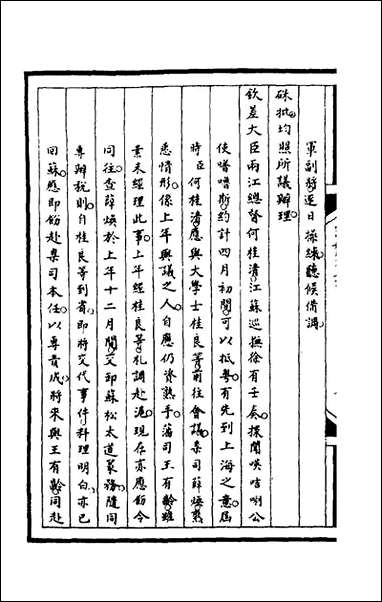 軍副將逐日操練聽候備調
硃批均照所議辦理
欽差大臣兩江總督何桂清江蘇巡撫徐有壬奏探聞𠸄咭唎公
使嚕嘶約計四月初間可以抵粵有先到上海之意屆
時臣何桂清應與大學士桂良等前往會議臬司薛煥熟
悉情形係上年與議之人自應仍資熟手藩司王有齡雖
素未經理此事上年經桂良等札調赴滬現存亦應飭令
同往查薛煥於上年十二月間交卸蘇松太道篆務隨同
專辦稅則自桂良等到省即將交代事件料理明白亦已
回蘇應即飭赴臬司本任以專責成將來與王有齡同赴